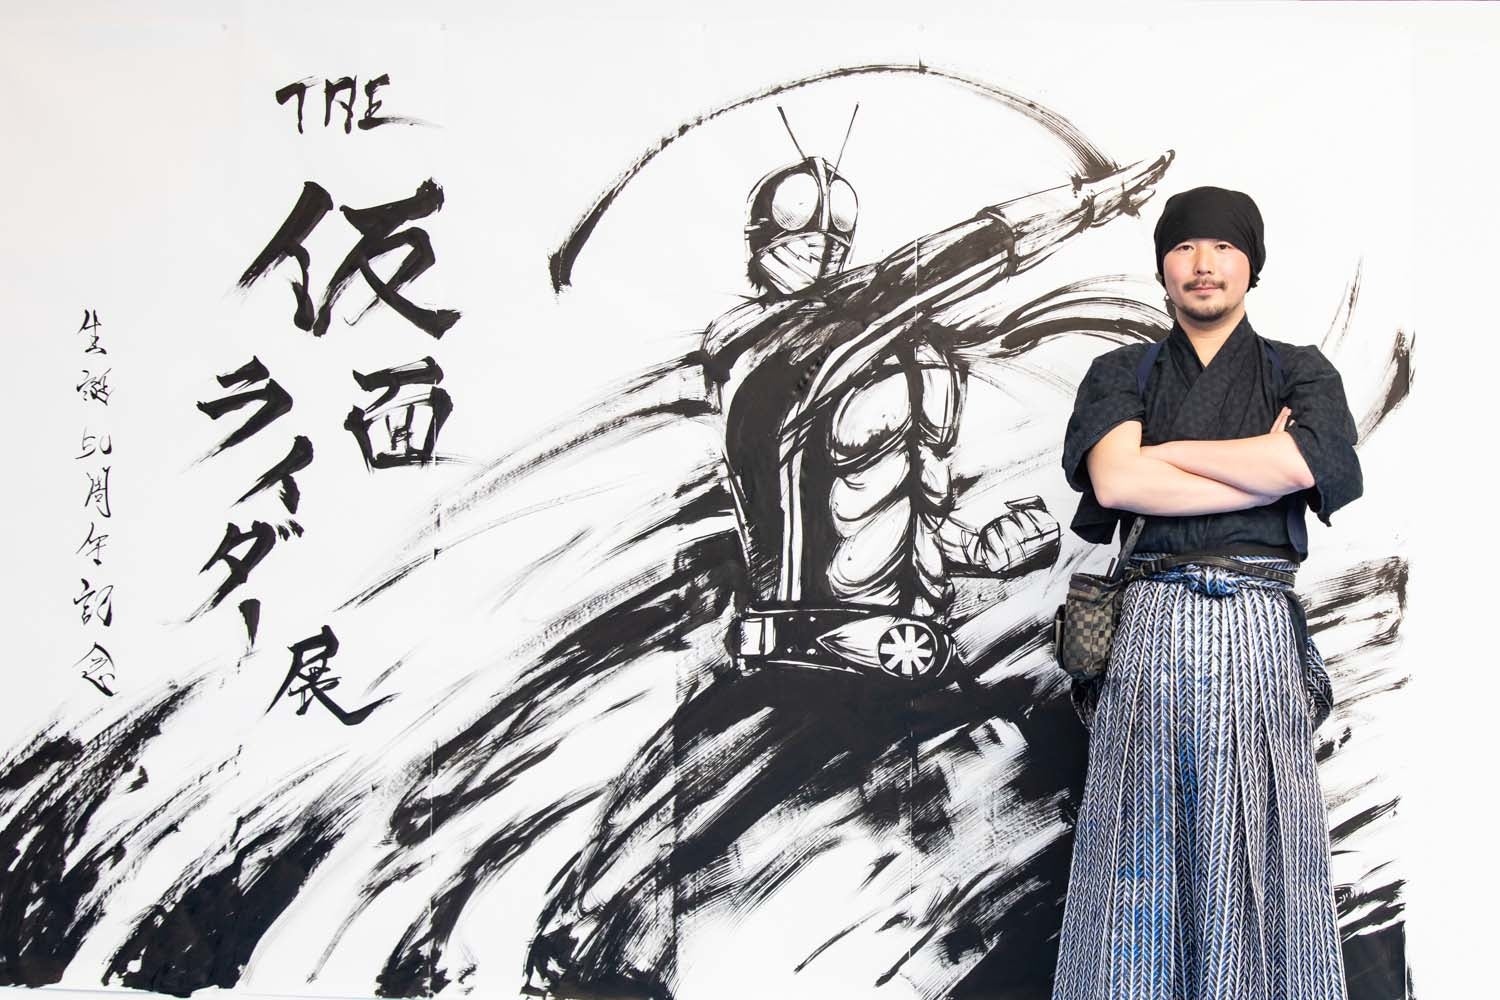 THE
仮面
ライダー
展
生誕50周年記念